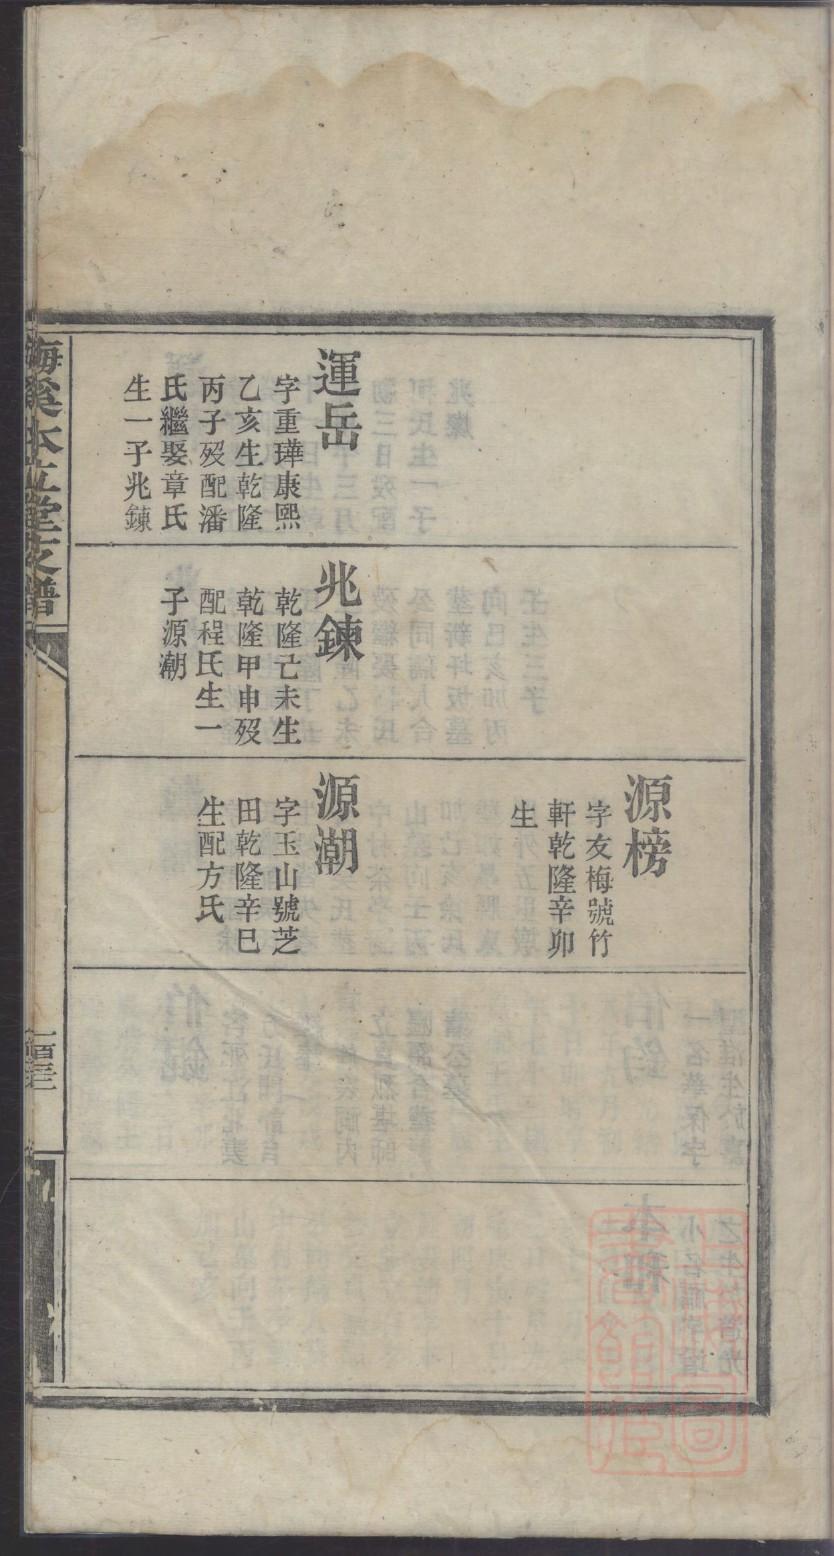 運岳
字重瑋康熙
乙亥生乾隆
丙子歿配潘
氏繼娶章氏
生一子兆鍊
兆鍊
乾隆己未生
乾隆甲申歿
配程氏生一
子源潮
源榜
字友梅號竹
軒乾隆辛卯
生
源潮
字玉山號芝
田乾隆辛巳
生配方氏
梅溪本立堂支譜